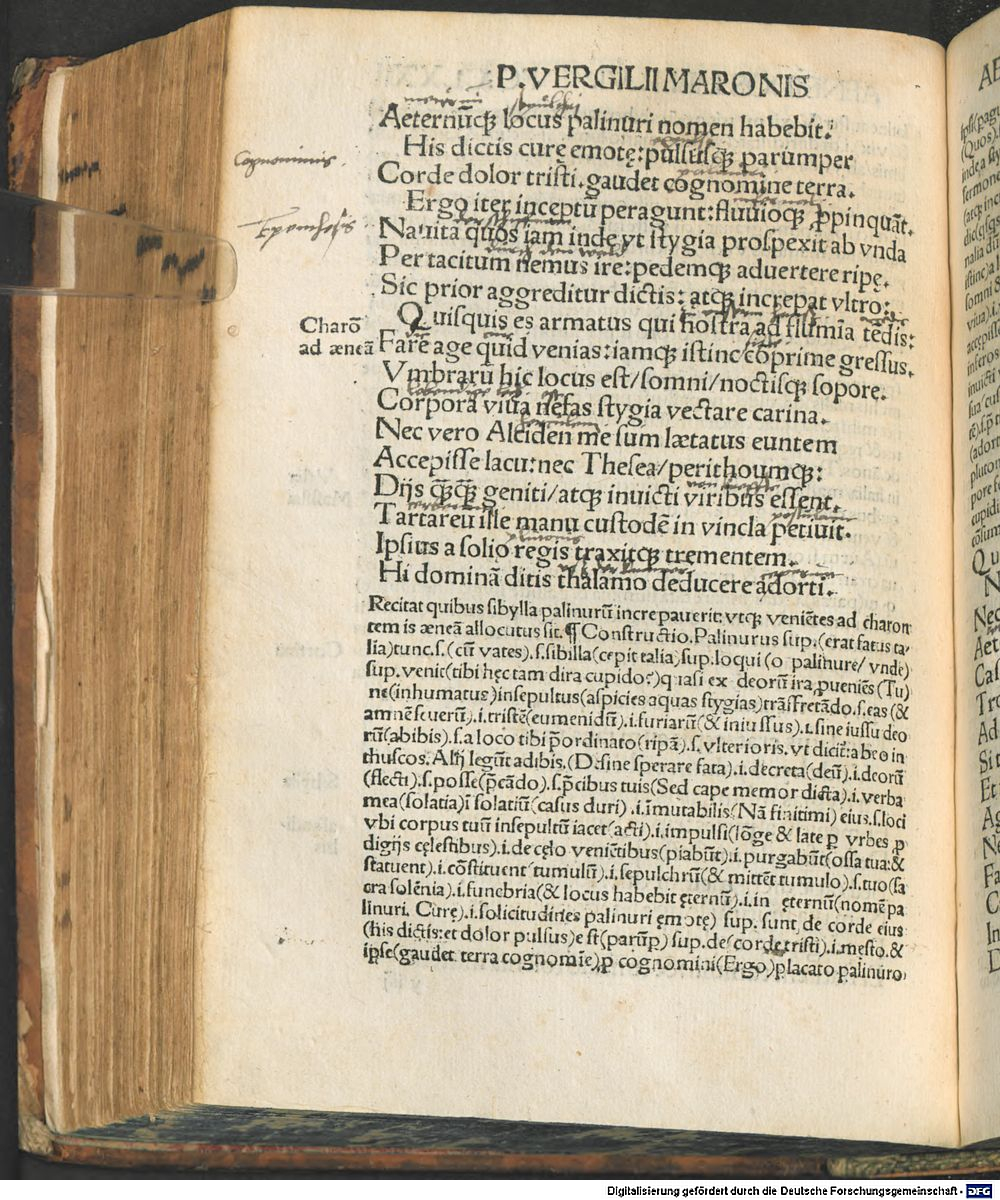 P. VERGILII MARONIS
Aeternũcꝫ locus palinuri nomen habebit.
His dictis curę emotę: pulsusꝗꝫ parumper
Corde dolor tristi. gaudet cognomine terra.
Ergo iter inceptũ peragunt: fluuioꝗꝫ ꝓpinquãt.
Nauita quos iam inde vt stygia prospexit ab vnda
Per tacitum nemus ire: pedemꝗꝫ aduertere ripę.
Sic prior aggreditur dictis: atꝗꝫ increpat vltro:
Charõ
ad æneã
Quisquis es armatus qui nostra ad flumina tẽdis:
Fare age quid venias: iamꝗꝫ istinc cõprime gressus.
Vmbrarũ hic locus est/ somni/ noctisꝗꝫ sopore.
Corpora viua nefas stygia vectare carina.
Nec vero Alciden me sum lætatus euntem
Accepisse lacu: nec Thesea/ perithoumꝗꝫ:
Dijs ꝗ̃ꝗ̃ geniti/ atꝗꝫ inuicti viribus essent.
Tartareũ ille manu custodẽ in vincla petiuit.
Ipsius a solio regis traxitꝗꝫ trementem.
Hi dominã ditis thalamo deducere adorti.
Recitat quibus sibylla palinurũ increpauerit: vtꝗꝫ veniẽtes ad charon
tem is æneã allocutus sit. ¶ Constructio. Palinurus sup. (erat fatus ta-
lia) tunc. s. (cũ vates). s. sibilla (cępit talia) sup. loqui (o palinure/ vnde)
sup. venit (tibi hęc tam dira cupido?) quasi ex deorũ ira ꝓueniẽs (Tu)
ne (inhumatus) insepultus (aspicies aquas stygias) trãsfretãdo. s. eas (&
amnẽ seuerũ). i. tristẽ (eumenidũ). i. furiarũ (& iniussus). i. sine iussu deo
rũ (abibis). s. a loco tibi p̃ordinato (ripã). s. vlterioris. vt dicit: abeo in
thuscos. Alij legũt adibis. (Desine sperare fata). i. decreta (deũ). i. deorũ
(flecti). s. posse (p̃cãdo). s. p̃cibus tuis (Sed cape memor dicta). i. verba
mea (solatia) ĩ solatiũ (casus duri). i. ĩmutabilis (Nã finitimi) eius. s. loci
vbi corpus tuũ insepultũ iacet (acti). i. impulsi (lõge & late ꝑ vrbes ꝓ
digijs cęlestibus). i. de cęlo veniẽtibus (piabũt). i. purgabũt (ossa tua: &
statuent). i. cõstituent (tumulũ). i. sepulchrũ (& mittẽt tumulo). s. tuo (sa
cra solẽnia). i. funebria (& locus habebit ęternũ). i. in ęternũ (nomẽ pa
linuri. Curę). i. solicitudines palinuri ęmotę) sup. sunt de corde eius
(his dictis: et dolor pulsus) est (parũꝑ) sup. de (corde tristi). i. męsto. &
ipse (gaudet terra cognomĩe) ꝓ cognomini (Ergo) placato palinuro
Digitalisierung gefördert durch die Deutsche Forschungsgemeinschaft - DFG